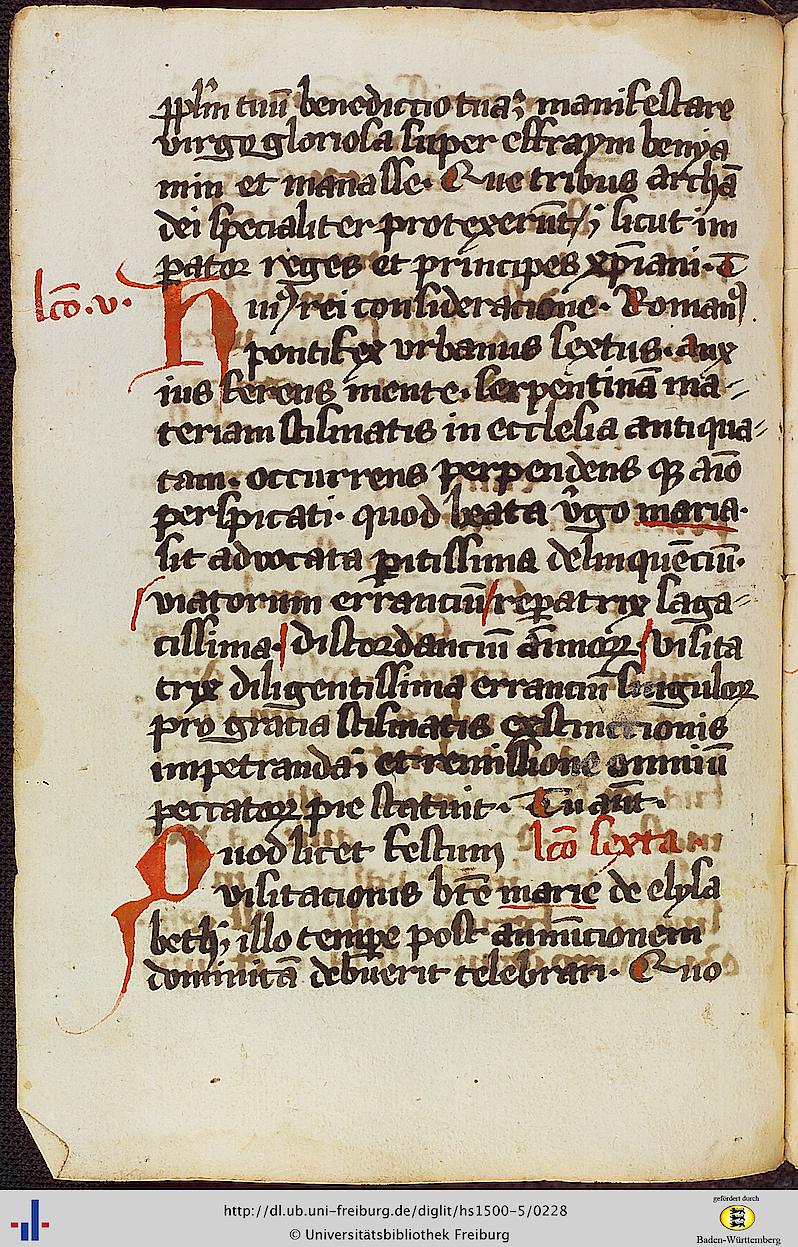 pplm tuū benedictio tuaʒ manifestare
virgo gloriosa super effraym benya
min et manasse. Que tribus archā
dei specialiter protexerūt/ ; sicut im
perator reges et principes xp̄iani. T
lcō. v.
Huiꝰ rei consideracione. Romanꝰ
pontifex vrbanus sextus. anx
ius ferens mente. serpentinā ma⸗
teriam scismatis in ecclesia antiqua⸗
tam. occurrens perpendens qꝫ aīo
perspicati. quod beata v̄go maria.
sit advocata pitissima delinquēciū.
viatorum erranciū/ reparatrix saga⸗
cissima/ discordanciū āīmoꝝ/ visita
trix diligentissima erranciū singuloꝝ
pro gracia scismatis exstinctionis
impetrandaʒ et remissione omniū
peccatoꝝ pie statuit. Tu aūt.
Quod licet festum lcō sexta.
visitacionis btē marie de elysa
beth; illo tempe post annūcionem
dominicā debuerit celebrari. Quo
http://dl.ub.uni-freiburg.de/diglit/hs1500-5/0228
© Universitätsbibliothek Freiburg
gefördert durch
Baden-Württemberg